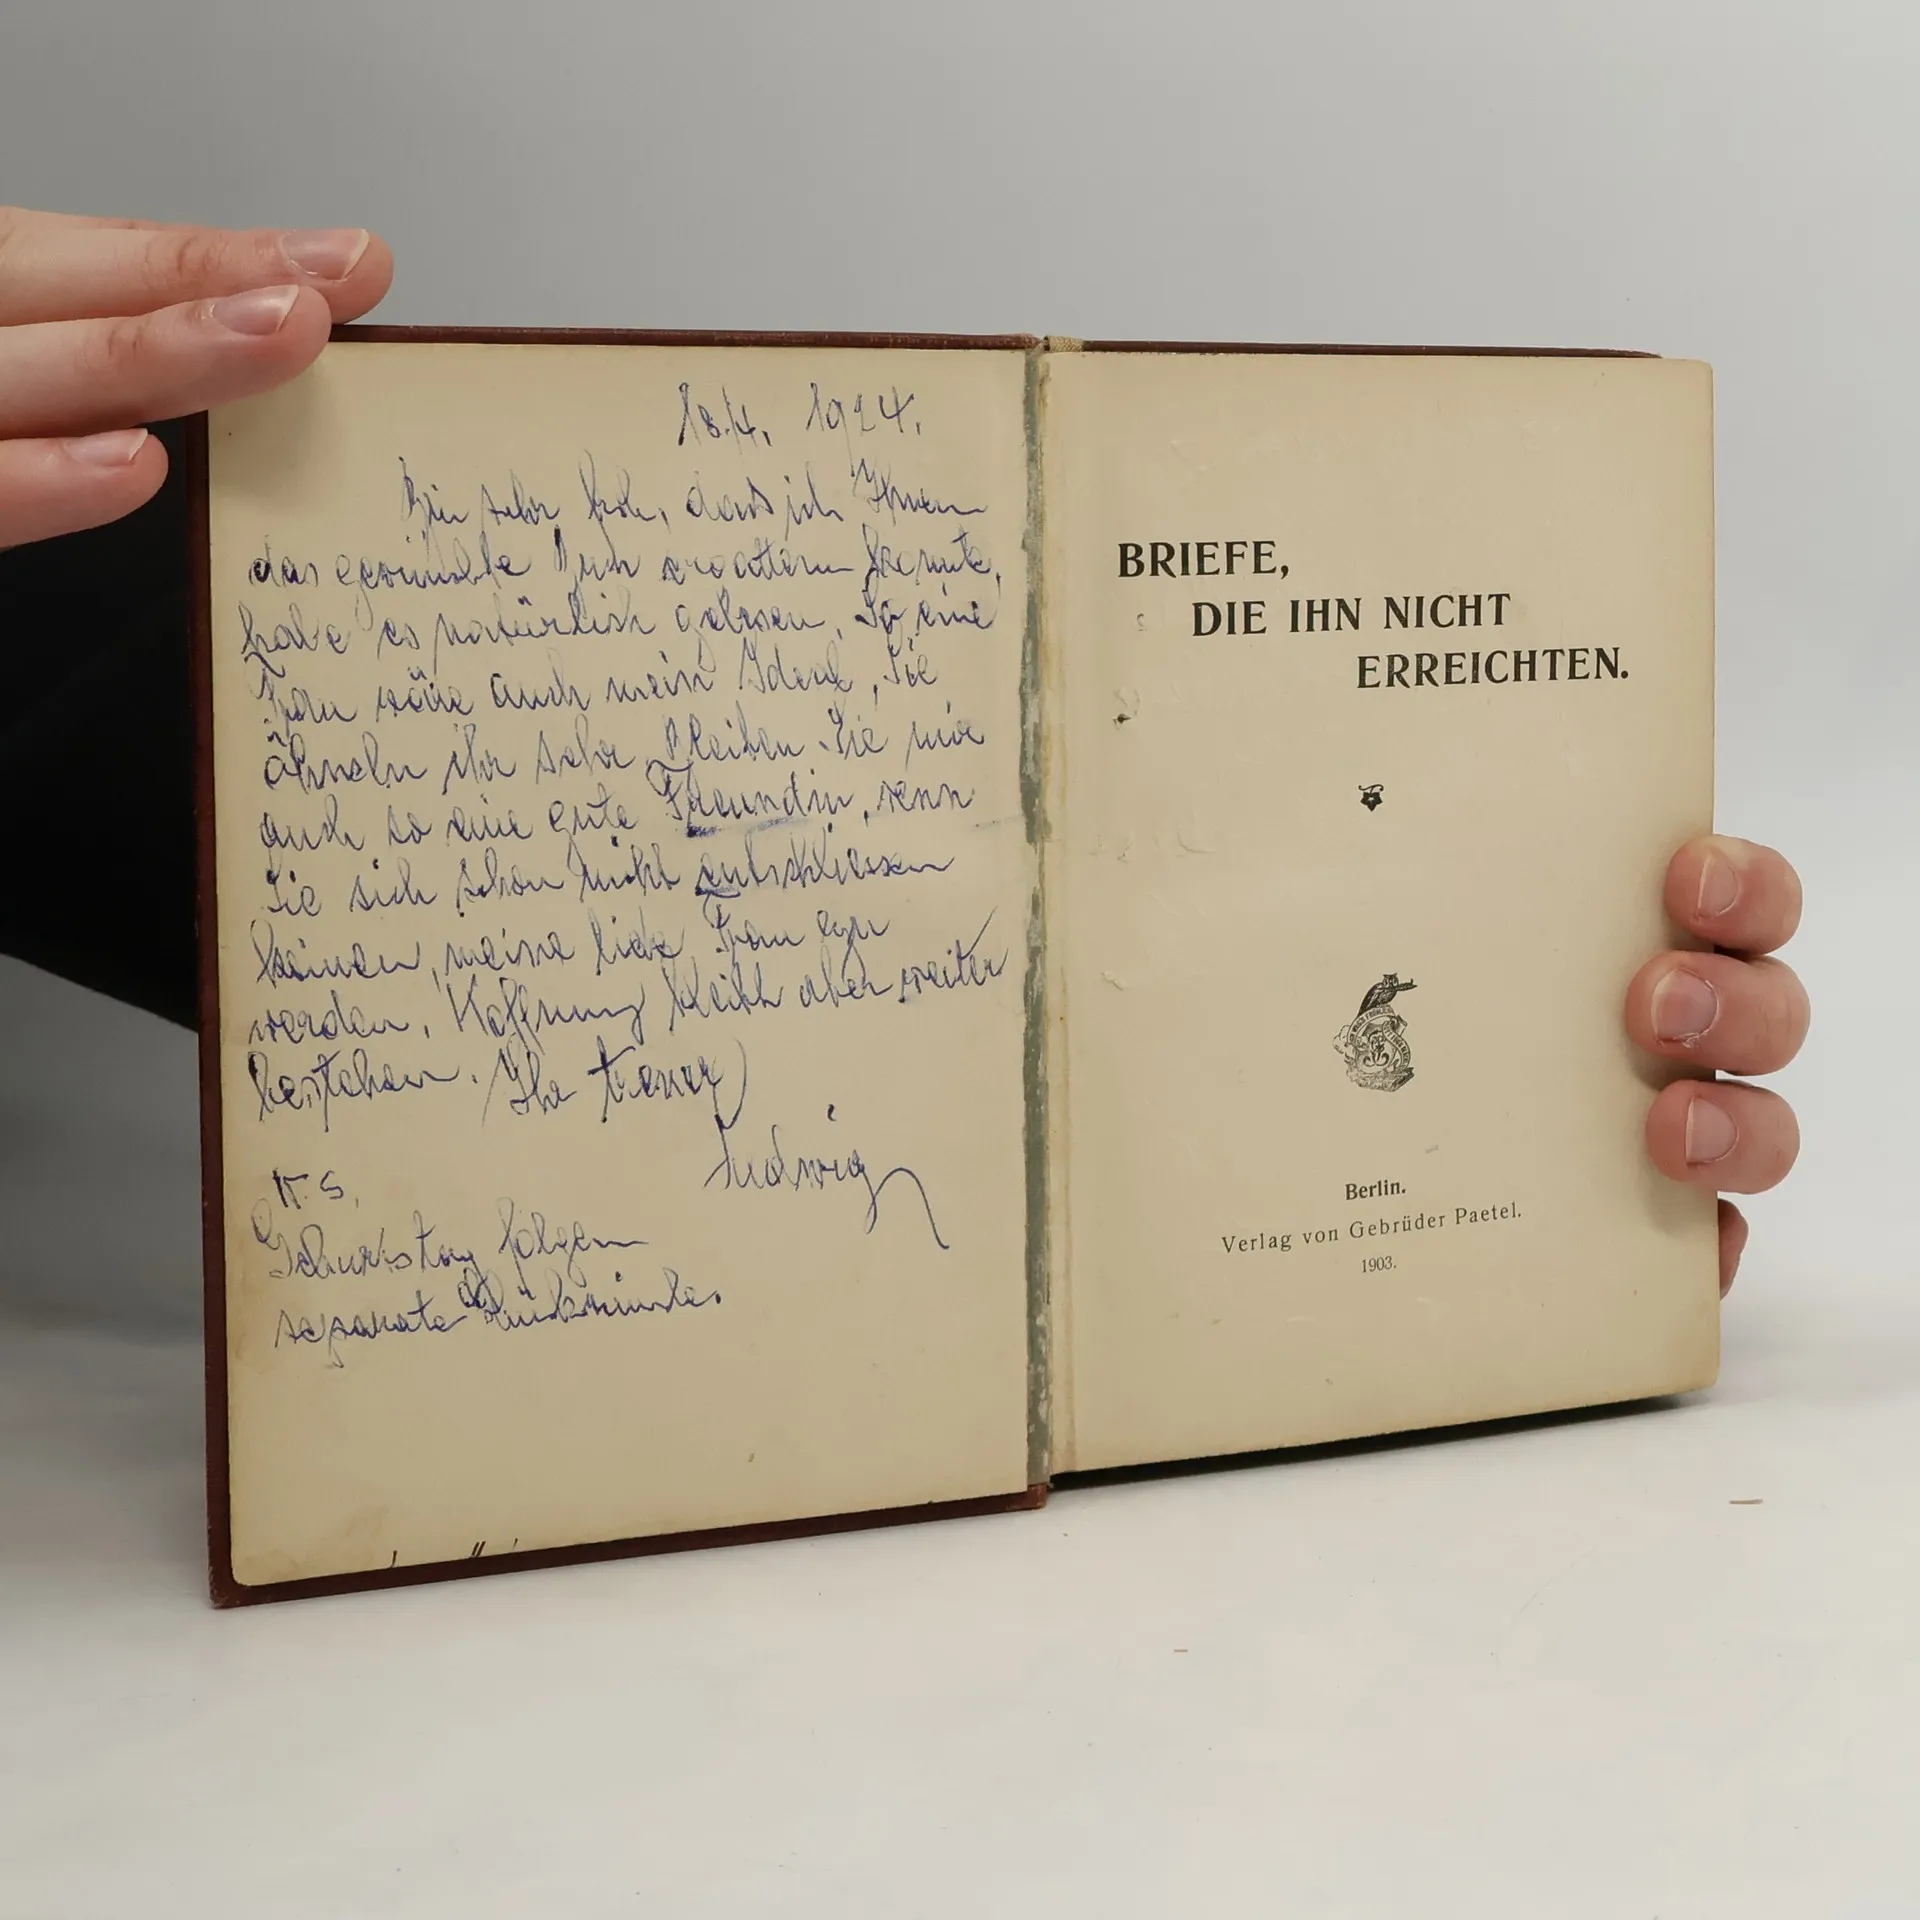 18./4. 1924.
Bin sehr froh, dass ich Ihnen
das gewünschte Buch konnte,
habe es natürlich gelesen. So eine
Frau wäre auch mein Ideal, Sie
ähneln ihr sehr. Bleiben Sie mir
auch so eine gute Freundin, wenn
Sie sich schon nicht entschliessen
können, meine liebe Frau zu
werden. Hoffnung bleibt aber weiter
bestehen. Ihr treuer
Ludwig
N.S.
Geburtstag folgen
separate Glückwünsche.
BRIEFE,
DIE IHN NICHT
ERREICHTEN.
Berlin.
Verlag von Gebrüder Paetel.
1903.